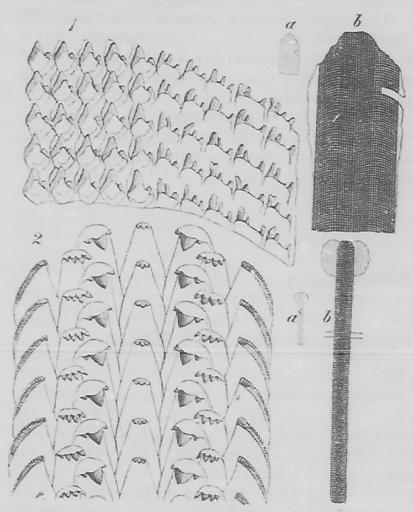 1 a b
2
a b